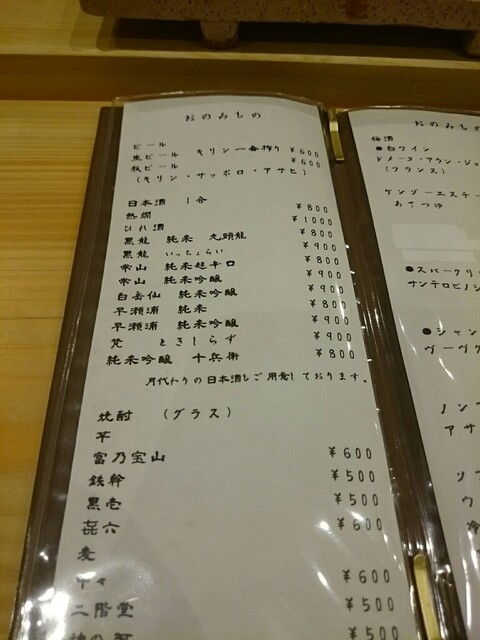 おのみもの
ビール
生ビール キリン一番搾り ¥600
瓶ビール ¥600
(キリン・サッポロ・アサヒ)
日本酒 1合
熱燗 ¥800
ひれ酒 ¥1000
黒龍 純米 九頭龍 ¥800
黒龍 いっちょらい ¥900
常山 純米超辛口 ¥800
常山 純米吟醸 ¥900
白岳仙 純米吟醸 ¥900
早瀬浦 純米 ¥800
早瀬浦 純米吟醸 ¥900
梵 ときしらず ¥900
純米吟醸 十兵衛 ¥800
月代わりの日本酒もご用意しております。
焼酎 (グラス)
芋
富乃宝山 ¥600
鉄幹 ¥500
黒壱 ¥500
㐂六 ¥600
麦
中々 ¥600
二階堂 ¥500
¥500
おのみもの
梅酒
●白ワイン
ドメーヌ・アラン・ジョ
(フランス)
ケンゾーエステー
あさつゆ
●スパークリ
サンテロピノシ
●シャン
ヴーヴク
ノン
アサ
ソフ
ウ
冷